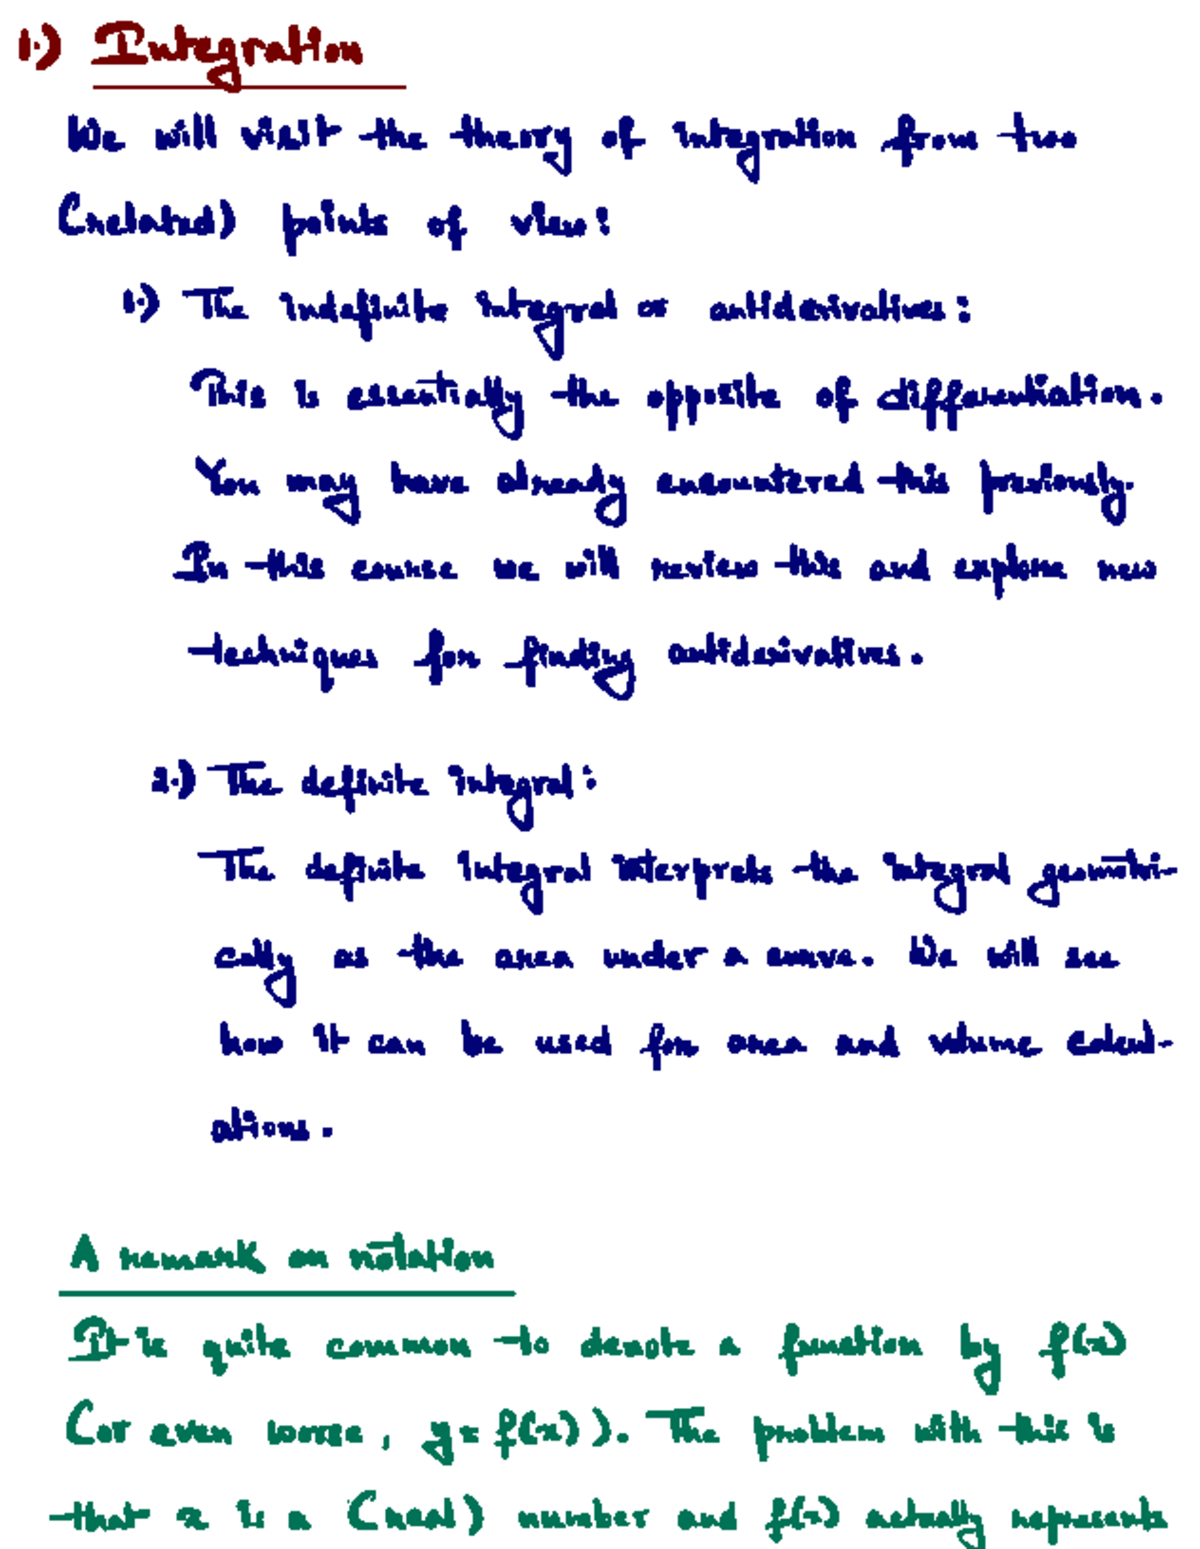 1.) Integration
We will visit the theory of integration from two
(related) points of view:
1.) The indefinite integral or antiderivatives:
This is essentially the opposite of differentiation.
You may have already encountered this previously.
In this course we will review this and explore new
techniques for finding antiderivatives.
2.) The definite integral:
The definite integral interprets the integral geometri-
cally as the area under a curve. We will see
how it can be used for area and volume calcul-
ations.
A remark on notation
It is quite common to denote a function by f(x)
(or even worse, y = f(x)). The problem with this is
that x is a (real) number and f(x) actually represents